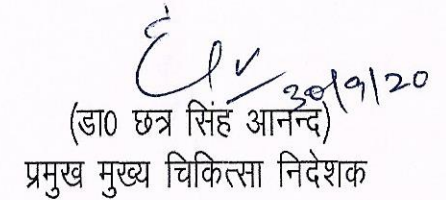 30/9/20
(डा0 छत्र सिंह आनन्द)
प्रमुख मुख्य चिकित्सा निदेशक